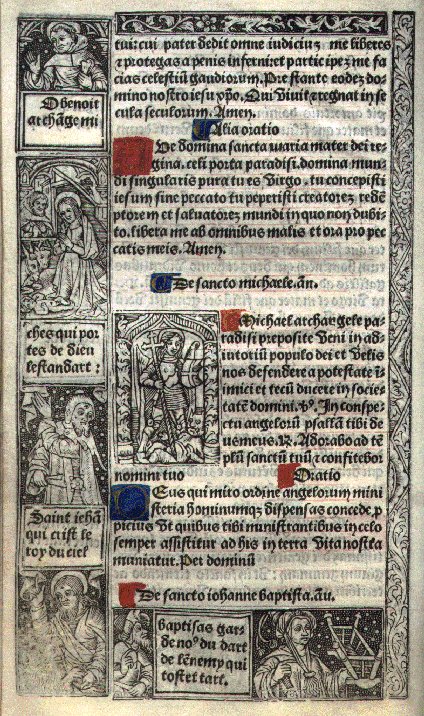 tui: cui pater dedit omne iudiciuȝ me liberes
& protegas a penis inferni: et participeȝ me fa
cias celestiū gaudiorum. Prestante eodeȝ do
mino nostro iesu xp̄o. Qui viuit & regnat in se
cula seculorum. Amen.
Alia oratio
Ue domina sancta maria mater dei re
gina. celi porta paradisi. domina mun
di singularis pura tu es virgo. tu concepisti
iesum sine peccato tu peperisti creatoreȝ redē
ptorem et saluatorez mundi in quo non dubi
to. libera me ab omnibus malis et ora pro pec
catis meis. Amen.
De sancto michaele. añ.
Michael archangele pa
radisi preposite veni in ad
iutoriū populo dei et velis
nos defendere a potestate i
mici et tecū ducere in socie
tatē domini. v̄. In conspe
ctu angelorū psallā tibi de
us meus. r̄. Adorabo ad tē
plū sanctū tuū & confitebor
nomini tuo
Oratio
Eus qui miro ordine angelorum mini
steria hominumqȝ dispensas concede. p
picius vt quibus tibi ministrantibus in celo
semper assistitur ab his in terra vita nostra
muniatur. Per dominū
De sancto iohanne baptista. añ.
O benoit
archāge mi
ches qui por
tes de dieu
lestandart:
Saint iehā
qui crist le
roy du ciel
baptisas gar
de noꝰ du dart
de lēnemy qui
tost et tart.